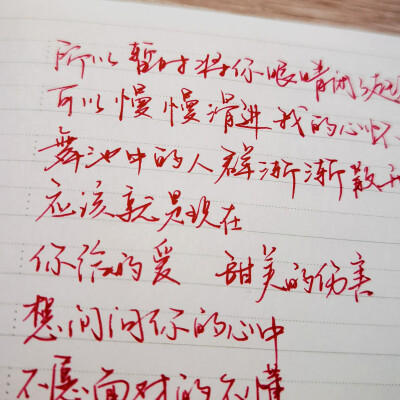 所以暂时将你眼睛闭了起
可以慢慢滑进我的心怀
舞池中的人群渐渐散开
应该就是现在
你给的爱 甜美的伤害
想问问你的心中
不愿面对的不懂